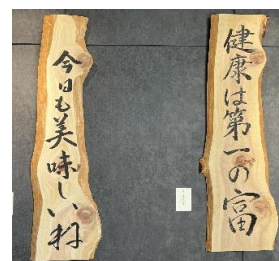 健康は第一の富
今日も美味しいね